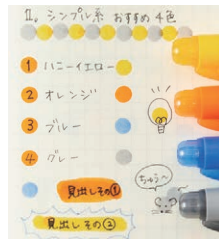 II. シンプル系 おすすめ4色
① ハニーイエロー
② オレンジ
③ ブルー
④ グレー
見出しその①
見出しその②
ちゅう〜